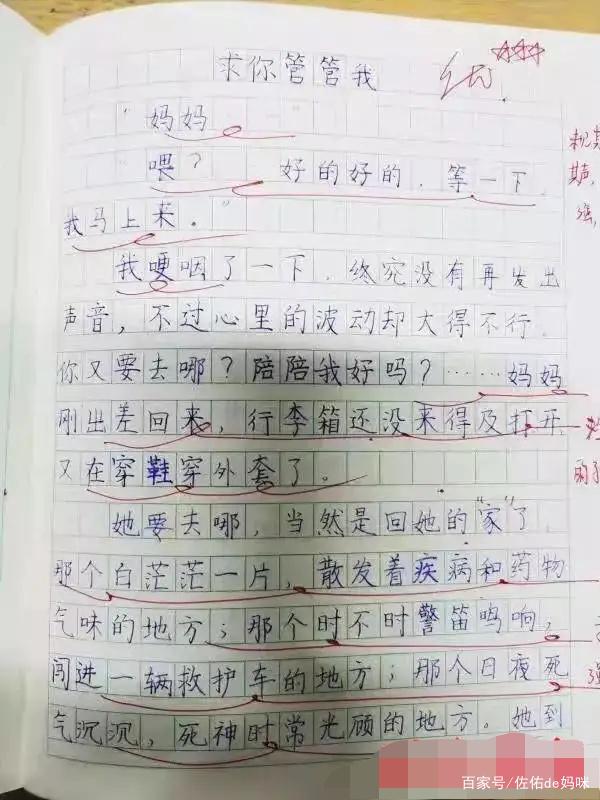 求你管管我
优
"妈妈……"
"喂？……好的好的，等一下，
我马上来。"
我哽咽了一下，终究没有再发出
声音，不过心里的波动却大得不行，
你又要去哪？陪陪我好吗？……妈妈
刚出差回来，行李箱还没来得及打开
又在穿鞋穿外套了。
她要去哪，当然是回她的"家"了，
那个白茫茫一片，散发着疾病和药物
气味的地方；那个时不时警笛鸣响，
闯进一辆救护车的地方；那个日夜死
气沉沉，死神时常光顾的地方。她到
强
百家号/佐佑de妈咪